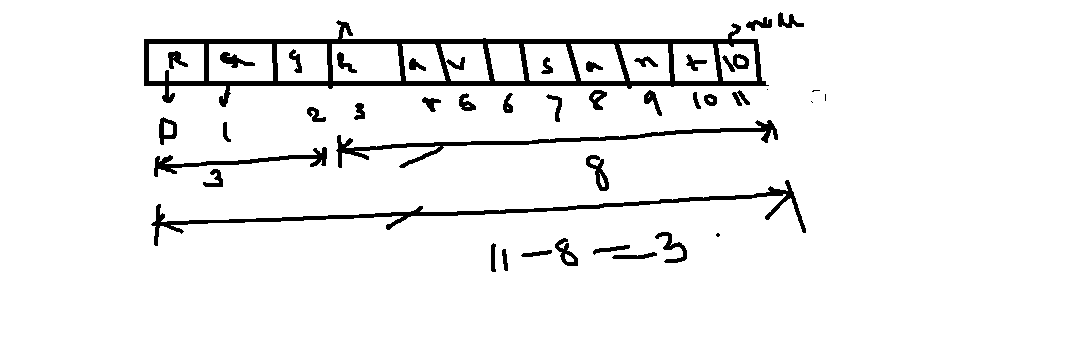 null
R a g h a v s a n t \0
0 1 2 3 4 5 6 7 8 9 10 11
3 8
11 - 8 = 3